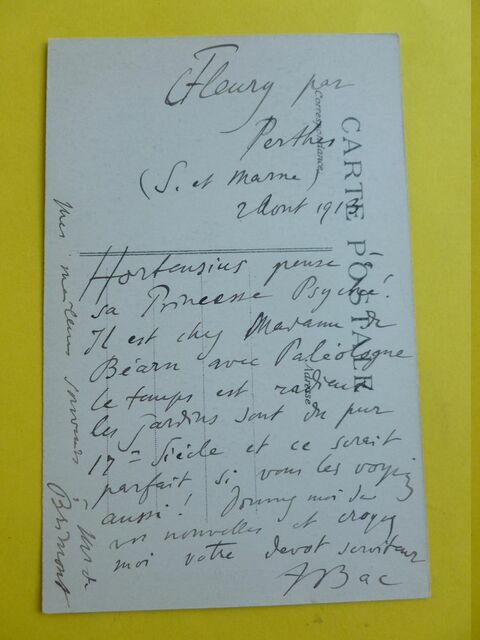 Fleury par
Perthes
(S. et Marne)
2 Aout 191
Hortensius pense à
sa Princesse Psyché!
Il est chez Madame de
Béarn avec Paléologue
le temps est radieux
les Jardins sont du pur
17me Siècle et ce serait
parfait si vous les voyiez
aussi! Donnez moi de
vos nouvelles et croyez
moi votre devot serviteur
FBac
mes meilleurs souvenirs
à Mr de
Brimont
CARTE POSTALE
Correspondance
Adresse